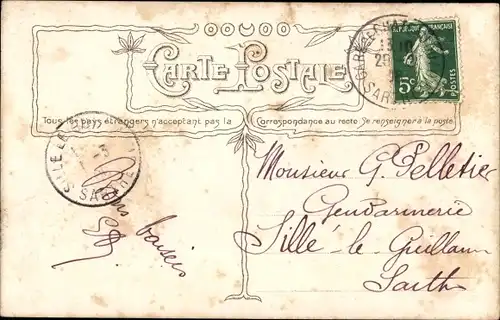 CARTE POSTALE
Tous les pays étrangers n'acceptent pas la Correspondance au recto. Se renseigner à la poste.
RÉPUBLIQUE FRANÇAISE
5c
POSTES
SILLÉ LE
SARTHE
bons baisers
Monsieur G. Pelletier
Gendarmerie
Sillé-le-Guillaume
Sarthe